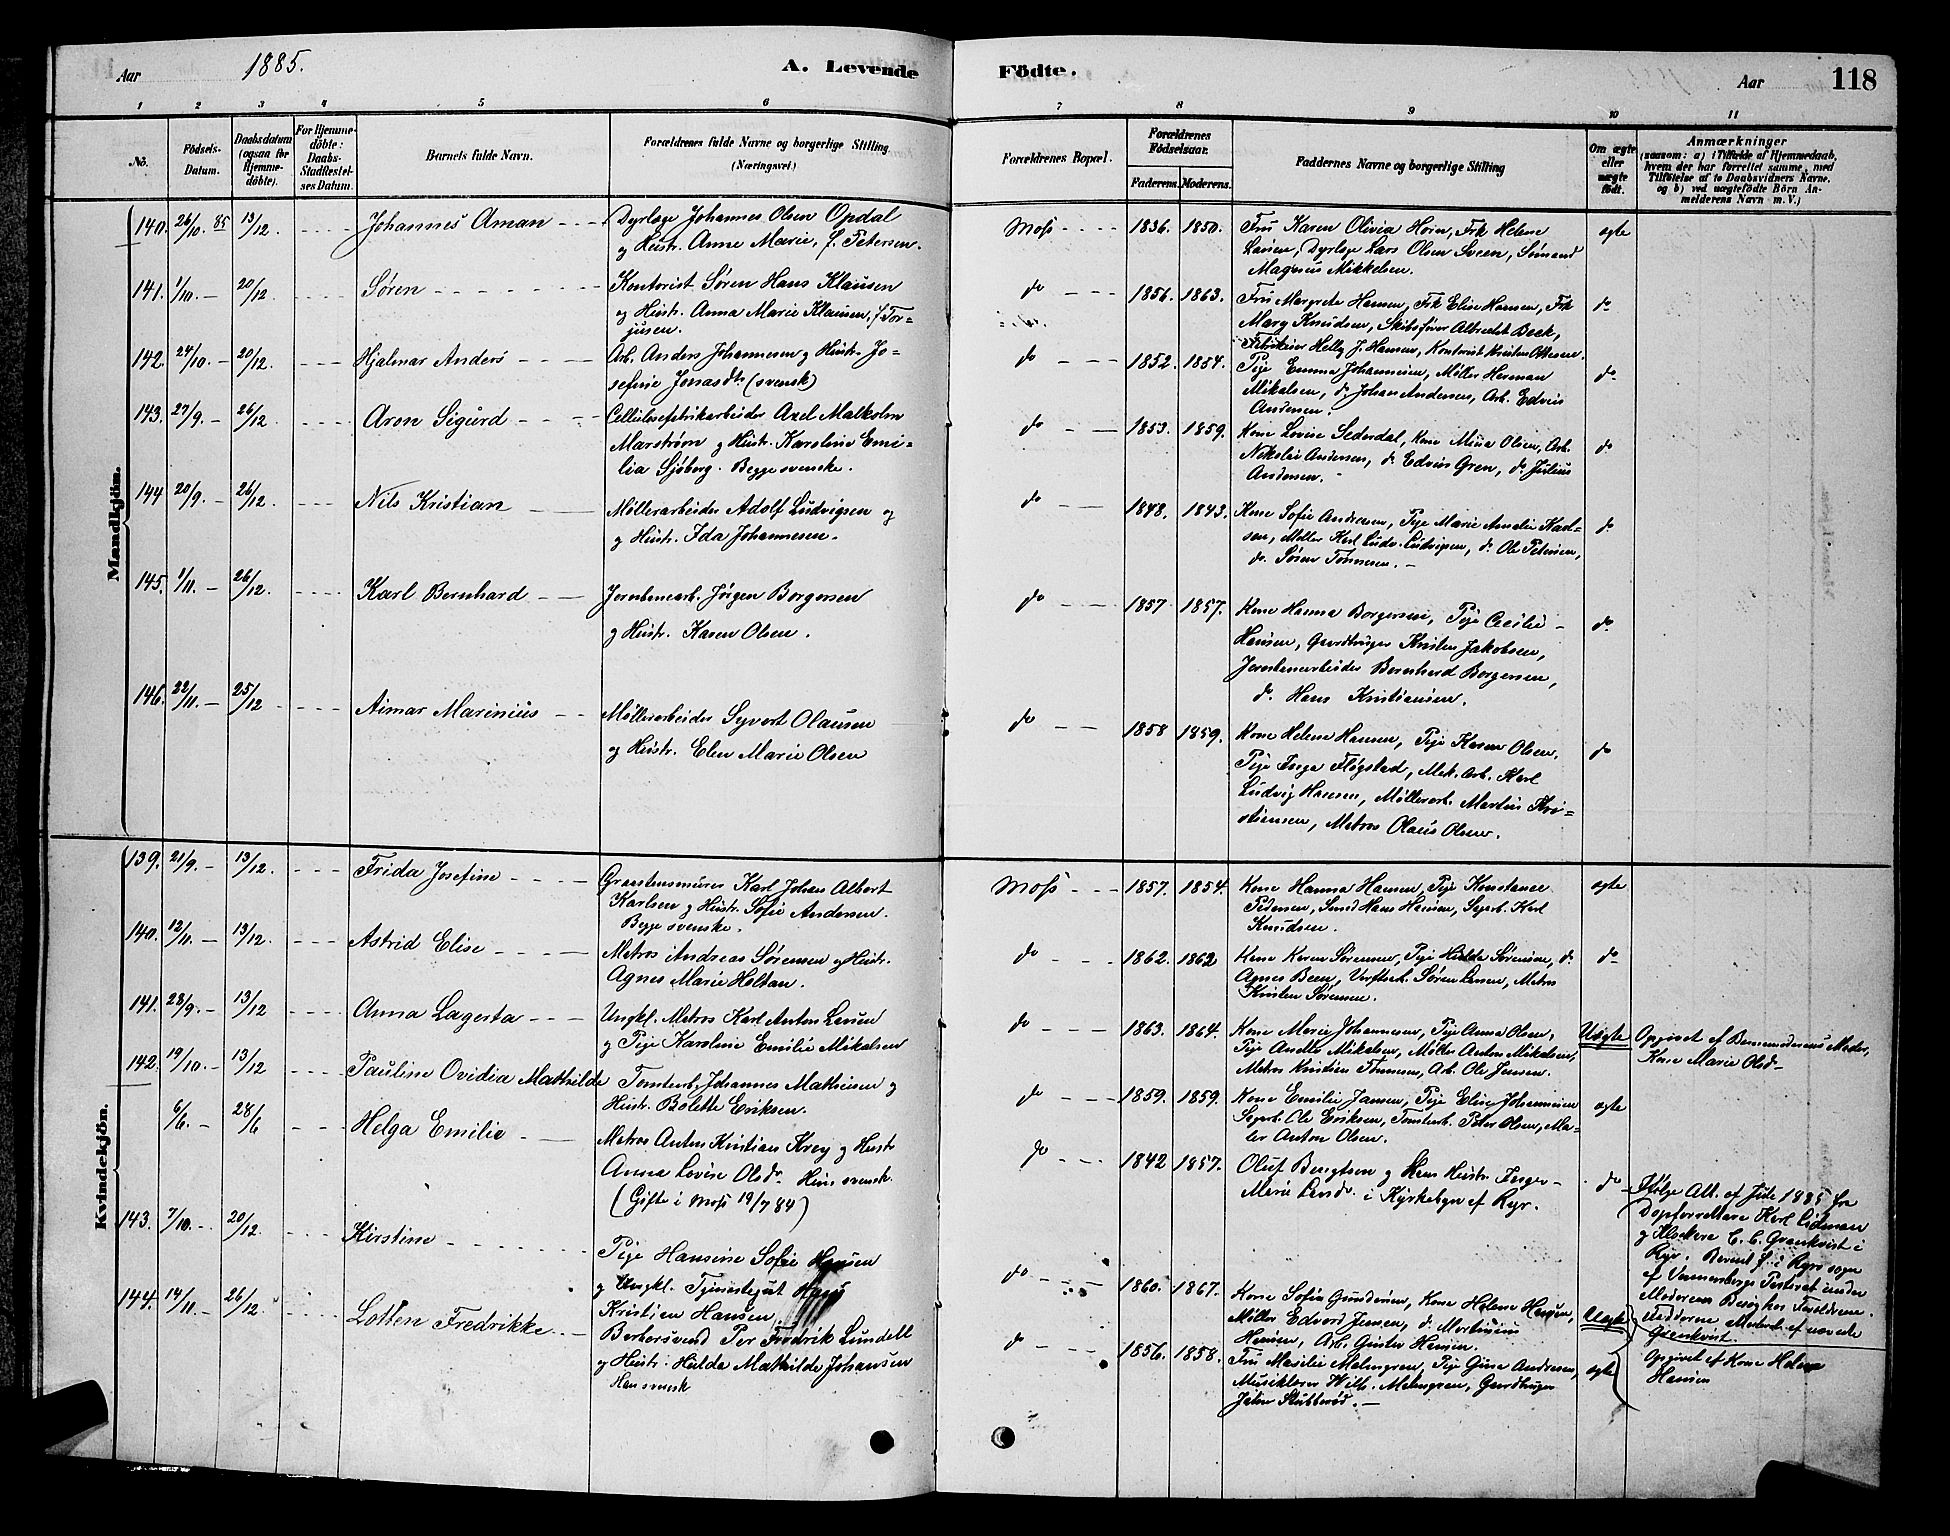 Aar 1885.
A. Levende
Födte.
Aar 118
1 2 3 4 5 6 7 8 9 10 11
No.
Födsels-Datum.
Daabsdatum (ogsaa for Hjemme-döbte).
For Hjemme-döbte: Daabs-Stadfestel-ses Datum.
Barnets fulde Navn.
Forældrenes fulde Navne og borgerlige Stilling (Næringsvei.)
Forældrenes Bopæl.
Forældrenes Födselsaar.
Faderens. Moderens.
Faddernes Navne og borgerlige Stilling
Om ægte eller uægte födt.
Anmærkninger
(saasom: a) i Tilfælde af Hjemmedaab,
hvem der har forrettet samme, med
Tilföielse af to Daabsvidners Navne,
og b) ved uægtefödte Börn An-
melderens Navn m. V.)
Mandkjön.
140. 26/10. 85 13/12. Johannes Aman
Dyrlæge Johannes Olsen Opdal
og Hustr. Anne Marie, f. Petersen.
Moss 1836. 1850.
Fru Karen Olivia Horn, Frk Helene
Larsen, Dyrlæge Lars Olsen Sveen, Sømand
Magnus Mikkelsen.
ægte
141. 1/10. – 20/12. Søren
Kontorist Søren Hans Klausen
og Hustr. Anna Marie Klausen, f. Tor=
jusen.
do 1856. 1863.
Fru Margrete Hansen, Frk Elise Hansen, Frk
Mary Knudsen, Skibsfører Albredt Beck,
Fabrikeier Helly J. Hansen, Kontorist Kristen Ottesen.
do
142. 24/10. – 20/12. Hjalmar Anders
Arb. Anders Johannesen og Hustr. Jo=
sefine Jonasdtr (svensk)
do 1852. 1854.
Pige Emma Johannesen, Møller Herman
Mikalsen, do Johan Andersen, Arb. Edvin
Andersen.
do
143. 27/9. – 26/12. Aron Sigurd
Cellulosefabrikarbeider Axel Malkolm
Marstrøm og Hustr. Karoline Emi=
lia Sjöberg. Begge svenske.
do 1853. 1859.
Kone Lovise Sederdal, Kone Mina Olsen, Arb.
Nikolai Andersen, do Edvin Gren, do Julius
Andersen.
do
144 20/9. – 26/12 Nils Kristian
Møllerarbeider Adolf Ludvigsen og
og Hustr. Ida Johannesen.
do 1848. 1843.
Kone Sofie Andersen, Pige Marie Amalie Karl=
sen, Møller Karl Ludv. Ludvigsen, do Ole Petersen,
do. Søren Tønnesen. –
do
145. 1/11. – 26/12. Karl Bernhard
Jernbanearb. Jørgen Borgersen
og Hustr. Karen Olsen.
do 1857 1857.
Kone Hanna Borgersen, Pige Cecilie
Hansen, Gaardbruger Kristen Jakobsen,
Jernbanearbeider Bernhard Borgersen,
do. Hans Kristiansen.
do
146. 22/11. – 25/12 Aimar Marinius
Møllerarbeider Syvert Olausen
og Hustr. Elen Marie Olsen
do 1858 1859.
Kone Helene Hansen, Pige Karen Olsen,
Pige Inga Fløgstad, Mek. Arb. Karl
Ludvig Hansen, Møllerarb. Martin Kri=
stiansen, Matros Olaus Olsen.
do
Kvindekjön.
139. 21/9. – 13/12. Frida Josefine
Graastensmurer Karl Johan Albert
Karlsen og Hustr. Sofie Andersen.
Begge svenske.
Moss 1857. 1854.
Kone Hanna Hansen, Pige Konstance
Pedersen, Smed Hans Hansen, Sagarb. Karl
Knudsen.
ægte
140. 12/11. – 13/12. Astrid Elise
Matros Andreas Sørensen og Hustr.
Agnes Marie Holtan.
do 1862. 1862
Kone Karen Sørensen, Pige Hulda Sørensen, do.
Agnes Been, Værftsarb. Søren Larsen, Matros
Kristen Sørensen.
do
141. 28/9. – 13/12 Anna Lagerta
Ungkl. Matros Karl Anton Larsen
og Pige Karoline Emilie Mikalsen
do 1863. 1864.
Kone Marie Johannesen, Pige Anna Olsen,
Pige Anette Mikalsen, Møller Anton Mikalsen,
Matros Kristian Tønnesen, Arb. Ole Jensen.
Uægte
Opgivet af Barnemoderens Moder,
Kone Marie Olsdtr
142. 19/10. – 13/12 Pauline Ovidia Mathilde
Tomtearb. Johannes Mathisen og
Hustr. Bolette Eriksen.
do 1859. 1859.
Kone Emilie Jansen, Pige Elise Johannesen
Sagarb. Ole Eriksen, Tomtearb. Peter Olsen, Ma=
ler Anton Olsen.
ægte
6/6. – 28/6 Helga Emilie
Matros Anton Kristian Krey og Hustr
Anna Lovise Olsdr. Hun svensk.
(Gifte i Moss 19/7 84)
do 1842 1857.
Oluf Bengtson og Hans Hustr. Inger
Maria Larsdr. i Kyrkebyn af Ryr.
do
Ifølge Att. af Juli 1885 fra
Dopforrettare Karl Lidman
og Klockare C. C. Grankvist i
Ryr. Barnet f. i Ryrs sogn
af Vennersborgs Pastorat under
Moderens Besøg hos Forældrene.
Fadderne meddelt af nævnte
Grankvist.
143. 7/10. – 20/12. Kirstine
Pige Hansine Sofie Hansen
og Ungkl. Tjenestegut Hans
Kristian Hansen.
do 1860. 1867.
Kone Sofia Gundersen, Kone Helene Hansen,
Møller Edvard Jensen, do. Martinius
Hansen, Arb. Gustav Hansen.
Uægte
Opgivet af Kone Helene
Hansen
144. 14/11. – 26/12. Lotten Fredrikke
Barbersvend Per Fredrik Lundell
og Hustr. Hulda Mathilde Johansen
Han svensk
do 1856. 1858.
Fru Masilie Malmgren, Pige Gina Andresen,
Musiklærer Wilh. Malmgren, Gaardbruger
Johan Stubberød. –
ægte